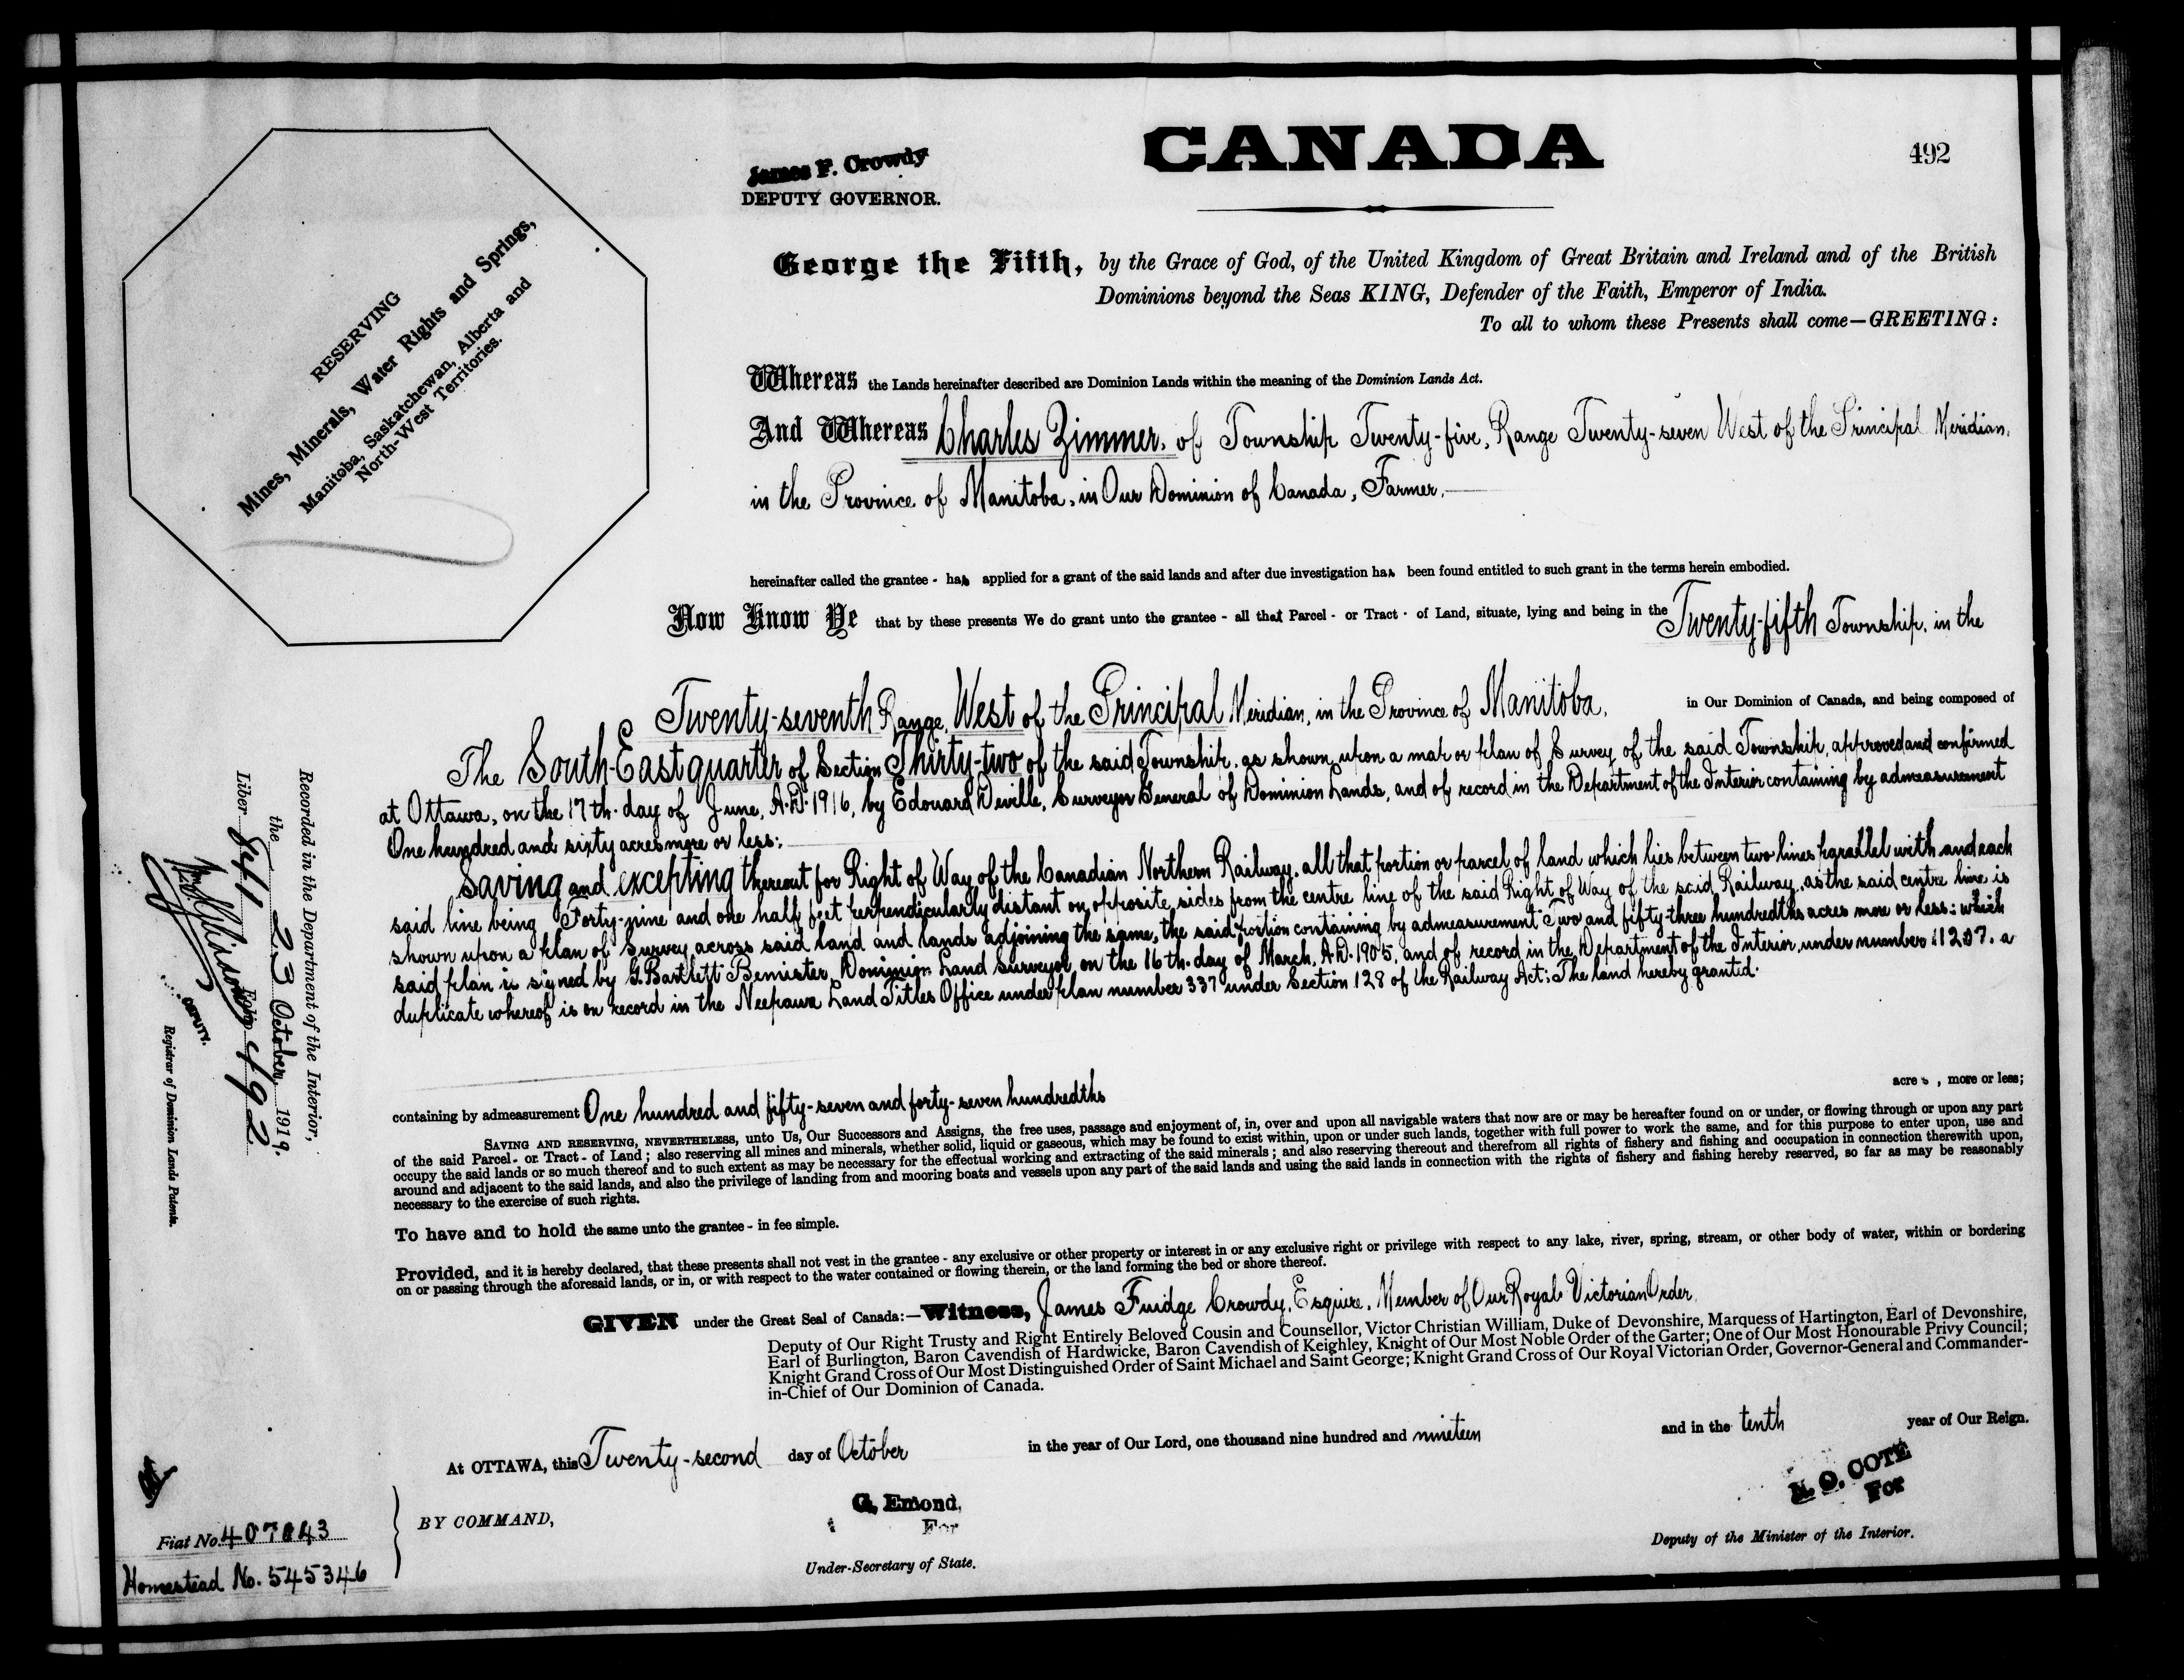 CANADA
492
James F. Crowdy
DEPUTY GOVERNOR.
RESERVING
Mines, Minerals, Water Rights and Springs,
Manitoba, Saskatchewan, Alberta and
North-West Territories.
George the Fifth, by the Grace of God, of the United Kingdom of Great Britain and Ireland and of the British
Dominions beyond the Seas KING, Defender of the Faith, Emperor of India.
To all to whom these Presents shall come—GREETING:
Whereas the Lands hereinafter described are Dominion Lands within the meaning of the Dominion Lands Act.
And Whereas Charles Zimmer, of Township Twenty-five, Range Twenty-seven West of the Principal Meridian,
in the Province of Manitoba, in Our Dominion of Canada, Farmer,
hereinafter called the grantee - has applied for a grant of the said lands and after due investigation has been found entitled to such grant in the terms herein embodied.
Now Know Ye that by these presents We do grant unto the grantee - all that Parcel - or Tract - of Land, situate, lying and being in the Twenty-fifth Township, in the
Twenty-seventh Range, West of the Principal Meridian, in the Province of Manitoba, in Our Dominion of Canada, and being composed of
The South-East quarter of Section Thirty-two of the said Township, as shown upon a map or plan of Survey of the said Township, approved and confirmed
at Ottawa, on the 17th. day of June, A.D. 1916, by Edouard Deville, Surveyor General of Dominion Lands, and of record in the Department of the Interior containing by admeasurement
One hundred and sixty acres more or less:
Saving and excepting thereout for Right of Way of the Canadian Northern Railway, all that portion or parcel of land which lies between two lines parallel with and each
said line being Forty-nine and one half feet perpendicularly distant on opposite sides from the centre line of the said Right of Way of the said Railway, as the said centre line is
shown upon a plan of Survey across said land and lands adjoining the same, the said portion containing by admeasurement Two and fifty-three hundredths acres more or less: which
said plan is signed by G. Bartlett Bemister, Dominion Land Surveyor, on the 16th. day of March, A.D. 1905, and of record in the Department of the Interior, under number 11207. a
duplicate whereof is on record in the Neepawa Land Titles Office under plan number 337 under Section 128 of the Railway Act: The land hereby granted.
containing by admeasurement One hundred and fifty-seven and forty-seven hundredths acres, more or less;
SAVING AND RESERVING, NEVERTHELESS, unto Us, Our Successors and Assigns, the free uses, passage and enjoyment of, in, over and upon all navigable waters that now are or may be hereafter found on or under, or flowing through or upon any part
of the said Parcel - or Tract - of Land; also reserving all mines and minerals, whether solid, liquid or gaseous, which may be found to exist within, upon or under such lands, together with full power to work the same, and for this purpose to enter upon, use and
occupy the said lands or so much thereof and to such extent as may be necessary for the effectual working and extracting of the said minerals; and also reserving thereout and therefrom all rights of fishery and fishing and occupation in connection therewith upon,
around and adjacent to the said lands, and also the privilege of landing from and mooring boats and vessels upon any part of the said lands and using the said lands in connection with the rights of fishery and fishing hereby reserved, so far as may be reasonably
necessary to the exercise of such rights.
To have and to hold the same unto the grantee - in fee simple.
Provided, and it is hereby declared, that these presents shall not vest in the grantee - any exclusive or other property or interest in or any exclusive right or privilege with respect to any lake, river, spring, stream, or other body of water, within or bordering
on or passing through the aforesaid lands, or in, or with respect to the water contained or flowing therein, or the land forming the bed or shore thereof.
GIVEN under the Great Seal of Canada:—Witness, James Fuidge Crowdy, Esquire, Member of Our Royal Victorian Order,
Deputy of Our Right Trusty and Right Entirely Beloved Cousin and Counsellor, Victor Christian William, Duke of Devonshire, Marquess of Hartington, Earl of Devonshire,
Earl of Burlington, Baron Cavendish of Hardwicke, Baron Cavendish of Keighley, Knight of Our Most Noble Order of the Garter; One of Our Most Honourable Privy Council;
Knight Grand Cross of Our Most Distinguished Order of Saint Michael and Saint George; Knight Grand Cross of Our Royal Victorian Order, Governor-General and Commander-
in-Chief of Our Dominion of Canada.
At OTTAWA, this Twenty-second day of October in the year of Our Lord, one thousand nine hundred and nineteen and in the tenth year of Our Reign.
BY COMMAND,
G. Emond,
For
Under-Secretary of State.
N. O. COTE
For
Deputy of the Minister of the Interior.
Recorded in the Department of the Interior,
the 23 October, 1919.
Liber 841 Folio 492
DEPUTY.
Registrar of Dominion Lands Patents.
Fiat No. 407043
Homestead No. 545346